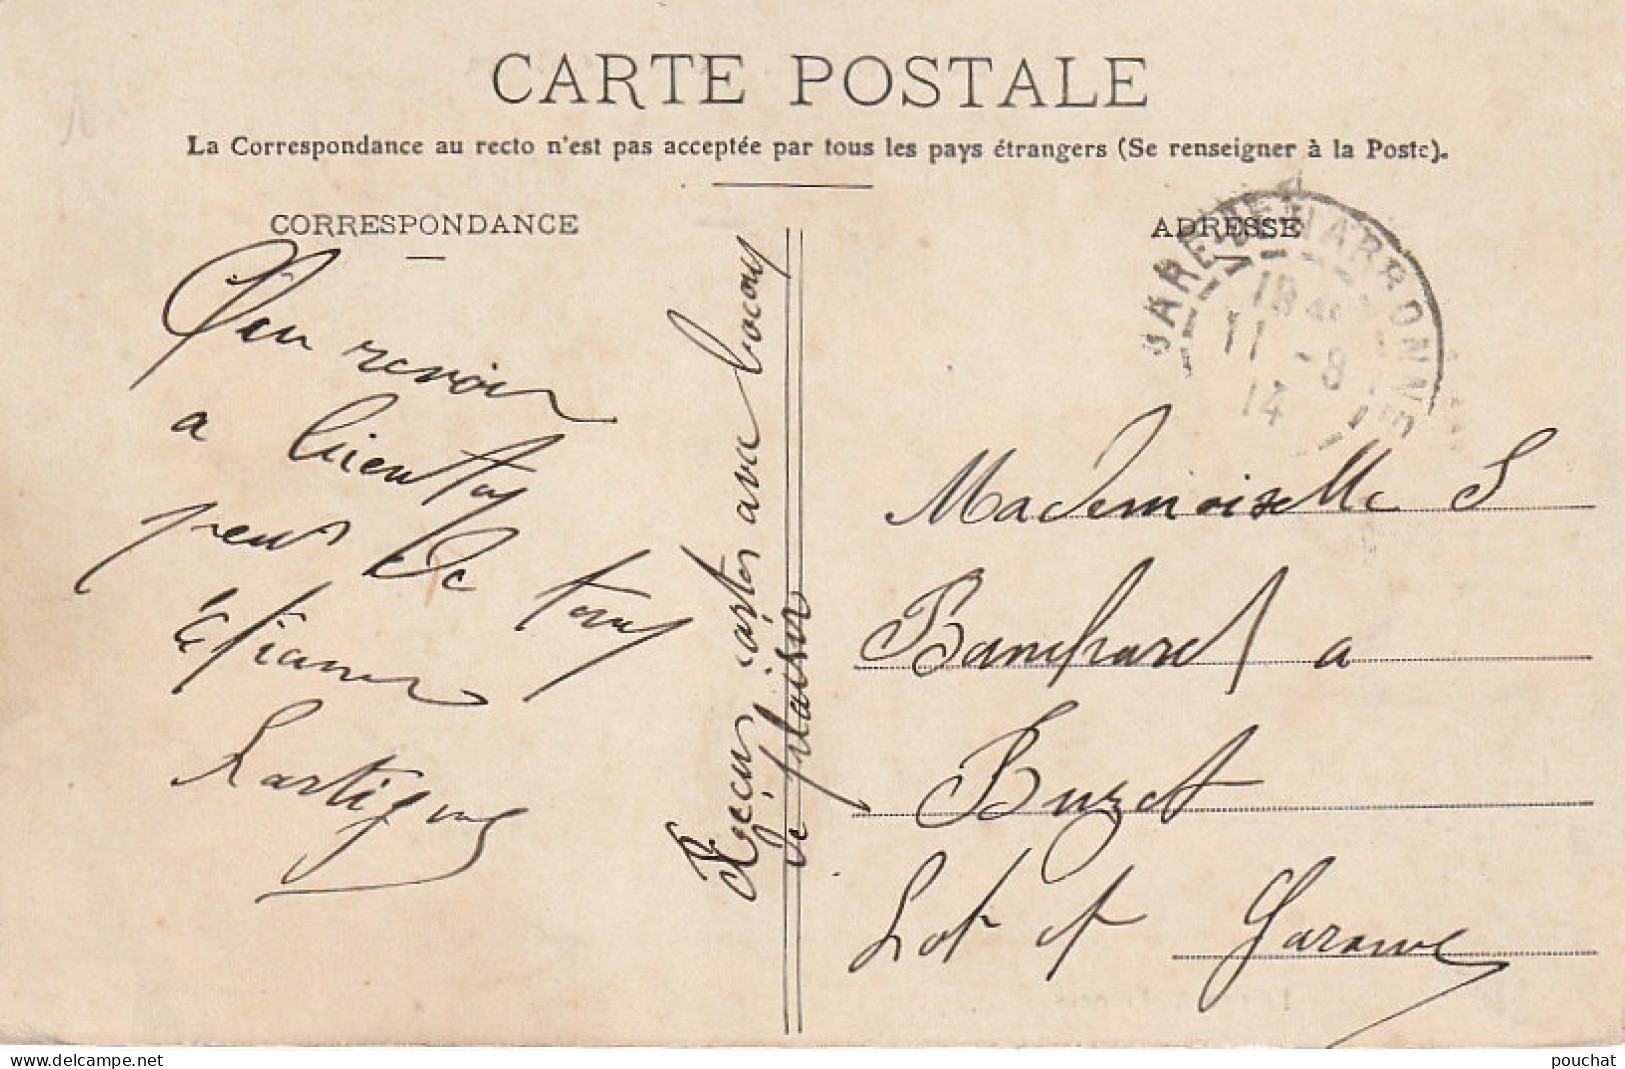 CARTE POSTALE
La Correspondance au recto n'est pas acceptée par tous les pays étrangers (Se renseigner à la Poste).
CORRESPONDANCE
ADRESSE
GARE DE NARBONNE
11 -8
14
revoir
a bientot
de tous
Lartigue
Reçeus cartes avec bocoup
de plaisir
Mademoiselle S
Banchard a
Buzet
Lot et Garonne
delcampe.net
pouchat